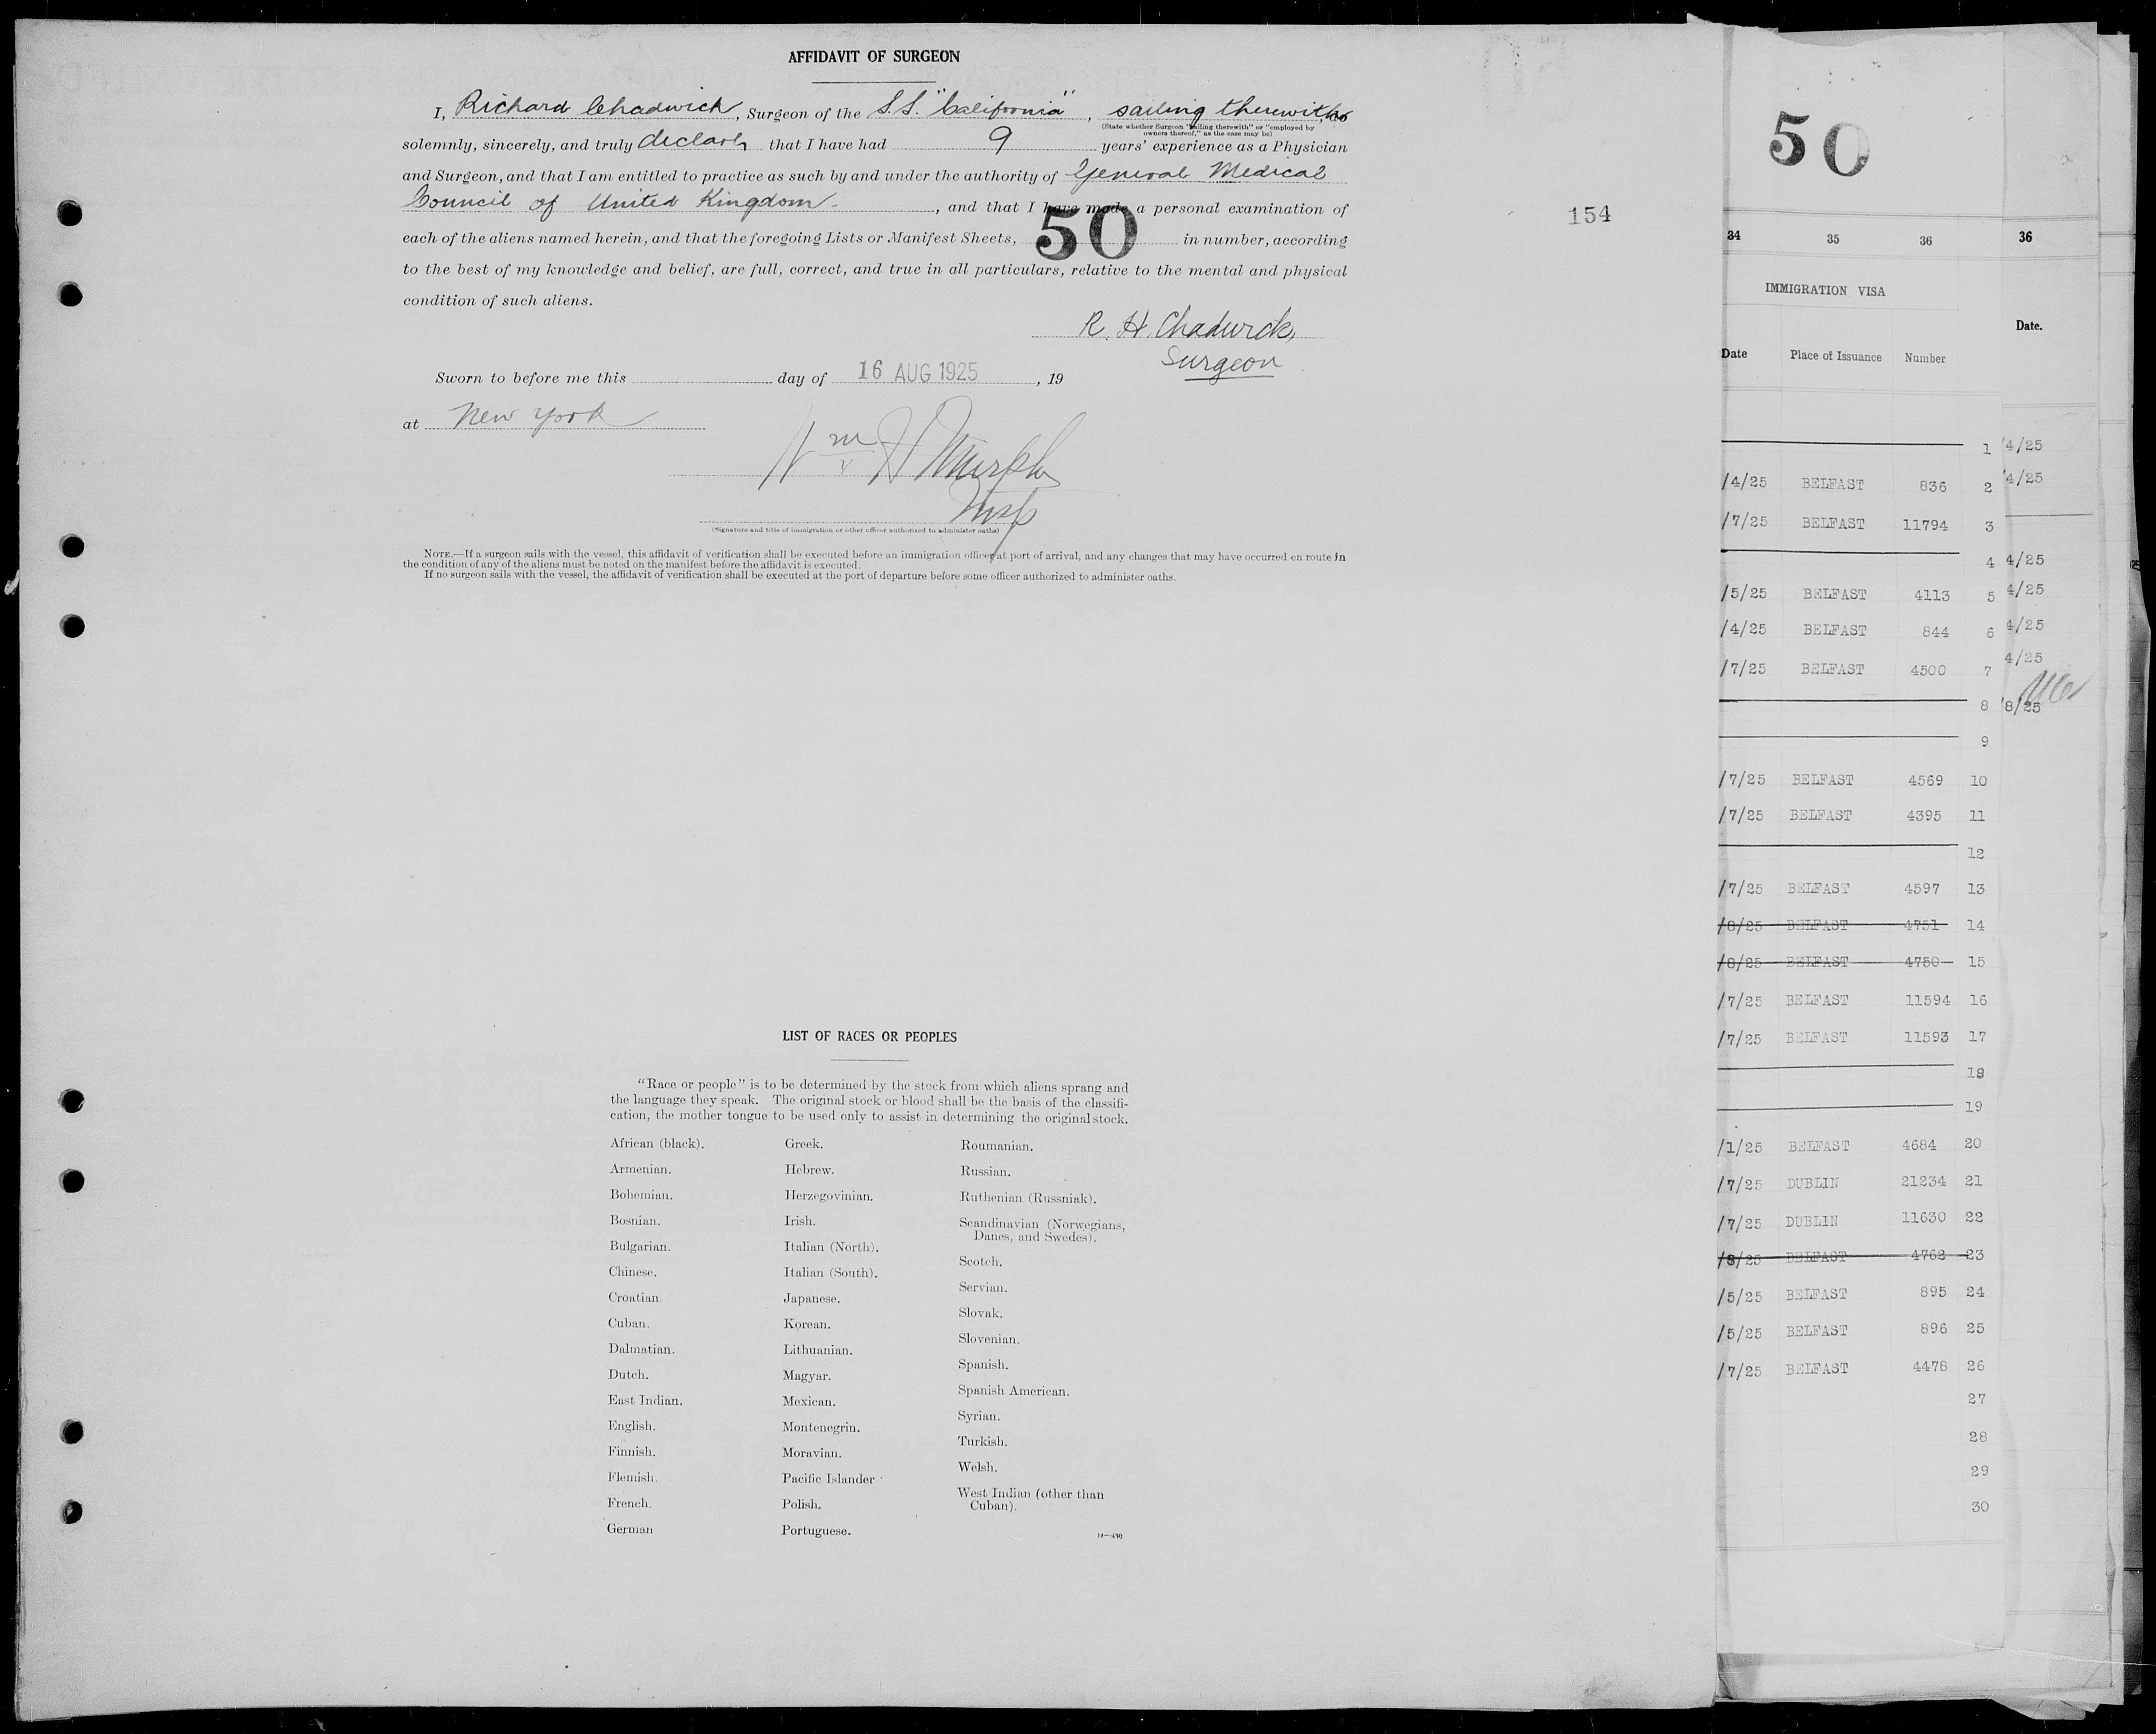 AFFIDAVIT OF SURGEON
I, Richard Chadwick, Surgeon of the S.S. "California", sailing therewith, do
(State whether Surgeon "sailing therewith" or "employed by
owners thereof," as the case may be)
solemnly, sincerely, and truly declare that I have had 9 years' experience as a Physician
and Surgeon, and that I am entitled to practice as such by and under the authority of General Medical
Council of United Kingdom., and that I have made a personal examination of
each of the aliens named herein, and that the foregoing Lists or Manifest Sheets, 50 in number, according
to the best of my knowledge and belief, are full, correct, and true in all particulars, relative to the mental and physical
condition of such aliens.
R. H. Chadwick,
Surgeon
Sworn to before me this day of 16 AUG 1925, 19
at New York
Wm H Murphy
Insp
(Signature and title of immigration or other officer authorized to administer oaths)
NOTE.—If a surgeon sails with the vessel, this affidavit of verification shall be executed before an immigration officer at port of arrival, and any changes that may have occurred en route in
the condition of any of the aliens must be noted on the manifest before the affidavit is executed.
If no surgeon sails with the vessel, the affidavit of verification shall be executed at the port of departure before some officer authorized to administer oaths.
154
LIST OF RACES OR PEOPLES
"Race or people" is to be determined by the stock from which aliens sprang and
the language they speak. The original stock or blood shall be the basis of the classifi-
cation, the mother tongue to be used only to assist in determining the original stock.
African (black).
Armenian.
Bohemian.
Bosnian.
Bulgarian.
Chinese.
Croatian.
Cuban.
Dalmatian.
Dutch.
East Indian.
English.
Finnish.
Flemish.
French.
German
Greek.
Hebrew.
Herzegovinian.
Irish.
Italian (North).
Italian (South).
Japanese.
Korean.
Lithuanian.
Magyar.
Mexican.
Montenegrin.
Moravian.
Pacific Islander
Polish.
Portuguese.
Roumanian.
Russian.
Ruthenian (Russniak).
Scandinavian (Norwegians,
Danes, and Swedes).
Scotch.
Servian.
Slovak.
Slovenian.
Spanish.
Spanish American.
Syrian.
Turkish.
Welsh.
West Indian (other than
Cuban).
50
34 35 36
IMMIGRATION VISA
Date Place of Issuance Number
1
/4/25 BELFAST 836 2
/7/25 BELFAST 11794 3
4
/5/25 BELFAST 4113 5
/4/25 BELFAST 844 6
/7/25 BELFAST 4500 7
8
9
/7/25 BELFAST 4569 10
/7/25 BELFAST 4395 11
12
/7/25 BELFAST 4597 13
/8/25 BELFAST 4751 14
/8/25 BELFAST 4750 15
/7/25 BELFAST 11594 16
/7/25 BELFAST 11593 17
18
19
/1/25 BELFAST 4684 20
/7/25 DUBLIN 21234 21
/7/25 DUBLIN 11630 22
/8/25 BELFAST 4762 23
/5/25 BELFAST 895 24
/5/25 BELFAST 896 25
/7/25 BELFAST 4478 26
27
28
29
30
36
Date.
/4/25
/4/25
4/25
4/25
4/25
4/25
/8/25